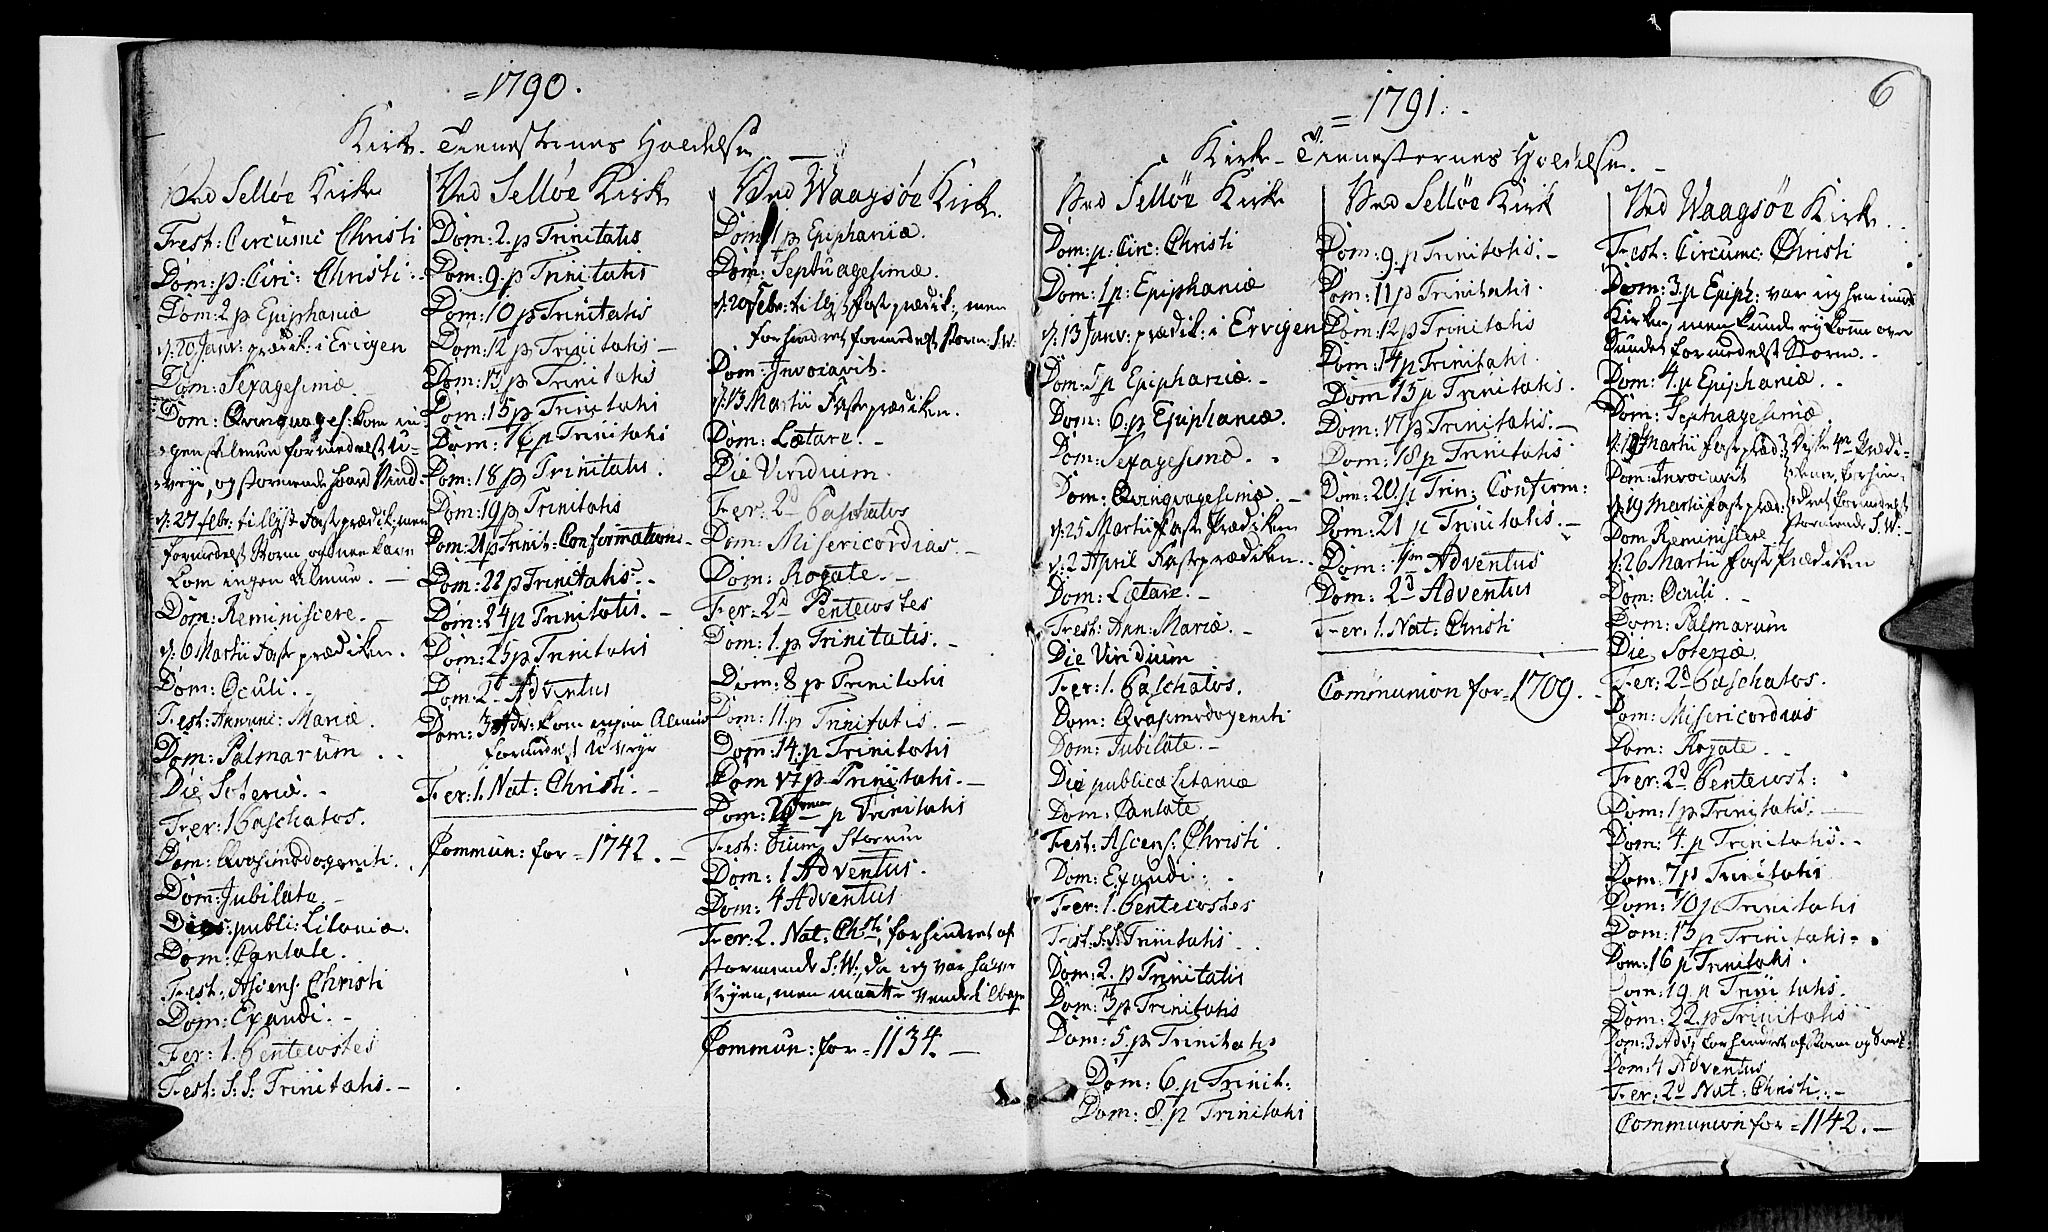 =1790.
Kirke-Tienesternes Holdelse
Ved Selløe Kirke
Fest: Circumc Christi
Dom: p: Circ: Christi.
Dom: 2 p Epiphaniæ
d. 20 Janv: prædik: i Erigen
Dom: Sexagesimæ
Dom: Qvinqvages: kom in-
gen Almue formedelst U-
veyr, og stormende haard Vind
d. 27 febr: tillyst Fasteprædik: men
formedelst Storm og
kom ingen Almue. -
Dom: Reminiscere. -
d. 6 Martii Fasteprædiken.
Dom: Oculi. -
Fest: Annunc: Mariæ.
Dom: Palmarum
Die Soteriæ. -
Fer: 1 Paschatos.
Dom: Qvasimodogeniti.
Dom: Jubilate. -
Dies publi: Litaniæ.
Dom: Cantate.
Fest: Ascens: Christi
Dom: Exaudi. -
Fer: 1. Pentecostes
Fest: S: S: Trinitatis. -
Ved Selløe Kirke
Dom: 2. p Trinitatis
Dom: 9. p Trinitatis
Dom: 10 p Trinitatis
Dom: 12 p Trinitatis -
Dom: 13 p Trinitatis
Dom: 15 p Trinitatis
Dom: 16 p Trinitatis
Dom: 18 p Trinitatis.
Dom: 19 p Trinitatis
Dom: 21 p Trinit: Confirmation -
Dom: 22 p Trinitatis. -
Dom: 24 p Trinitatis. -
Dom: 25 p Trinitatis
Dom: 2d Adventus
Dom: 3 Adv: kom ingen Almue
formedelst Uveyr
Fer: 1. Nat: Christi. -
Commun: for = 1742. -
Ved Waagsøe Kirke.
Dom: 1 p Epiphaniæ.
Dom: Septuagesimæ.
d. 20 Febr: tillyst Fasteprædik: men
forhindret formedelst Storm: S:W:
Dom: Invocavit.
d. 13 Martii Fasteprædiken.
Dom: Lætare. -
Die Viridium.
Fer: 2d Paschatos
Dom: Misericordias. -
Dom: Rogate. -
Fer: 2d Pentecostes
Dom: 1. p Trinitatis. -
Dom: 8 p Trinitatis
Dom: 11. p Trinitatis. -
Dom: 14. p Trinitatis
Dom 17 p Trinitatis. -
Dom: 20 p Trinitatis
Fest: Oium Storum
Dom: 1 Adventus.
Dom: 4 Adventus
Fer: 2. Nat: Chsti, forhindret af
stormende S.W:, da ieg var
Veyen, men maatte vende tilbage
Commun: for = 1134. -
6
= 1791. -
Kirke-Tienesternes Holdelse. -
Ved Selløe Kirke
Dom: p: Circ: Christi
Dom: 1 p: Epiphaniæ
d. 13 Janv: prædik: i Ervigen
Dom: 5 p Epiphaniæ. -
Dom: 6. p Epiphaniæ.
Dom: Sexagesimæ.
Dom: Qvinqvagesimæ. -
d. 25 Martii Faste Prædiken
d. 2 April Fasteprædiken.
Dom: Lætare. -
Fest: Ann: Mariæ. -
Die Viridium
Fer: 1. Paschatos.
Dom: Qvasimodogeniti
Dom: Jubilate. -
Die publicæ Litaniæ
Dom: Cantate
Fest: Ascens: Christi.
Dom: Exaudi.
Fer: 1. Pentecostes
Fest: S: S: Trinitatis.
Dom: 2. p Trinitatis
Dom: 3 p Trinitatis
Dom: 5. p Trinitatis
Dom: 6. p Trinit:
Dom: 8. p Trinitatis
Ved Selløe Kirk
Dom: 9. p Trinitatis. -
Dom: 11 p Trinitatis.
Dom: 12 p Trinitatis
Dom: 14 p Trinitatis.
Dom 15 p Trinitatis.
Dom: 17 p Trinitatis. -
Dom: 18 p Trinitatis
Dom: 20. p Trin: Confirm:
Dom: 21 p Trinitatis. -
Dom: 1ma Adventus
Dom: 2d Adventus
Fer: 1. Nat: Christi
Communion for = 1709. -
Ved Waagsøe Kirke.
Fest: Circumc: Christi
Dom: 3. p Epiph: var ieg hen imod
Kirken, men kunde ey komme over
Sundet formedelst Storm. -
Dom: 4. p Epiphaniæ. -
Dom: Septuagesimæ
d. Martii Fastepræd: Disse Prædi-
Dom: Invocavit kener forhin-
d. 19 Martii Fastepræd: dret formedelst
Dom Reminiscere stormende S.W: -
d. 26 Martii Faste Prædiken
Dom: Oculi. -
Dom: Palmarum
Die Soteriæ
Fer: 2d Paschatos.
Dom: Misericordias
Dom: Rogate. -
Fer: 2d Pentecost:
Dom: 1 p Trinitatis.
Dom: 4. p Trinitatis. -
Dom: 7 p Trinitatis
Dom: 10 p Trinitatis
Dom: 13 p Trinitatis.
Dom: 16 p Trinitatis.
Dom: 19 p Trinitatis.
Dom: 22. p Trinitatis
Dom: 3 Adv: forhindret af Storm og
Dom: 4 Adventus
Fer: 2d Nat: Christi. -
Communion for = 1142. -